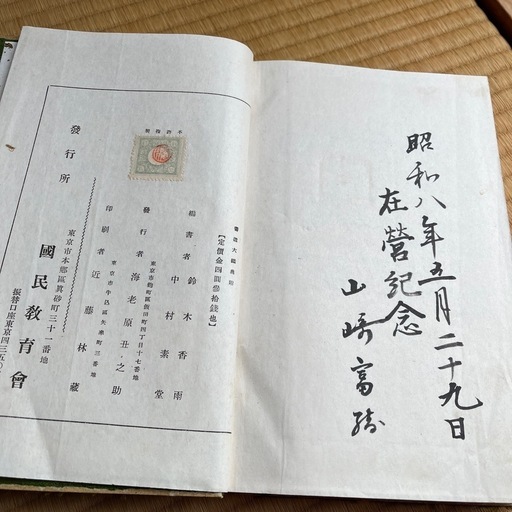 昭和八年五月二十九日
在營紀念
山崎富
不許複製
書道大鑑奥附
【定價金四圓參拾錢也】
揭書者 鈴木香雨
中村素堂
東京市麴町區飯田町四丁目十七番地
發行者 海老原丑之助
東京市牛込區矢來町三番地
印刷者 近藤林藏
發行所
東京市本鄕區眞砂町三十一番地
國民敎育會
振替口座東京四三五〇